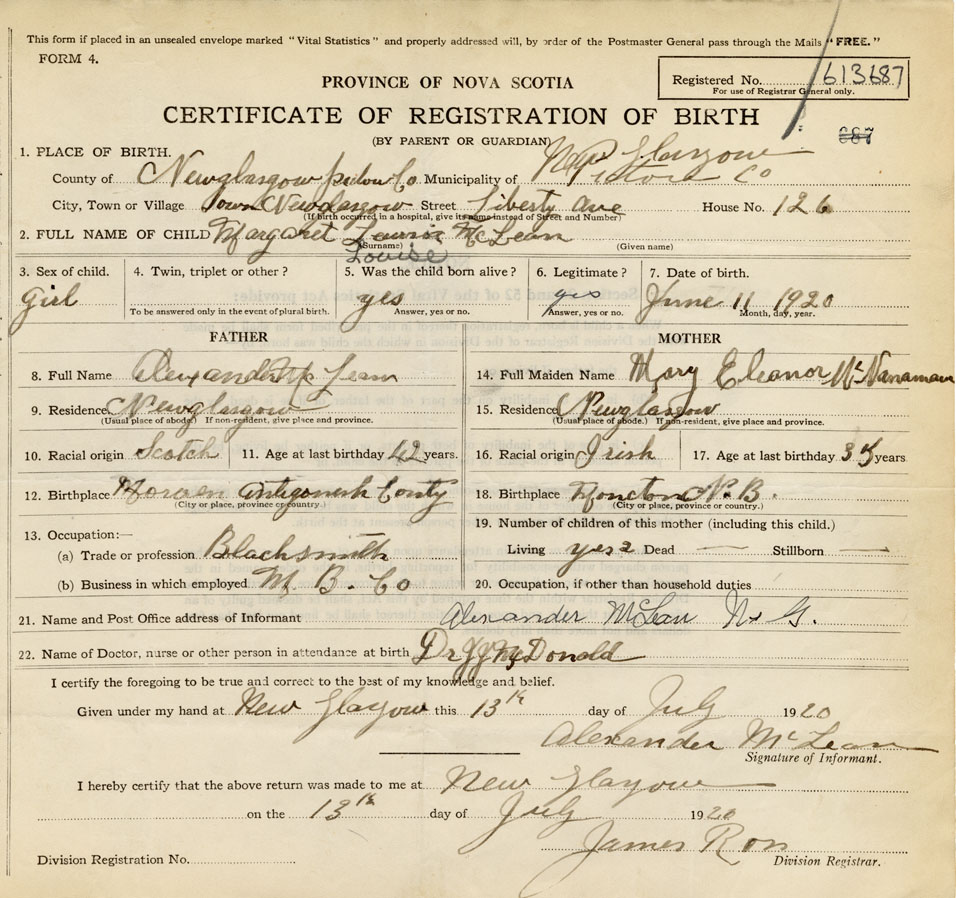 This form if placed in an unsealed envelope marked "Vital Statistics" and properly addressed will, by order of the Postmaster General pass through the Mails "FREE."
FORM 4.
PROVINCE OF NOVA SCOTIA
Registered No. 613687
For use of Registrar General only.
CERTIFICATE OF REGISTRATION OF BIRTH
687
(BY PARENT OR GUARDIAN)
1. PLACE OF BIRTH. New Glasgow
County of Newglasgow Co. Municipality of Pictou Co
City, Town or Village Town Newglasgow Street Liberty ave House No. 126
(If birth occurred in a hospital, give its name instead of Street and Number)
2. FULL NAME OF CHILD Margaret McLean
(Surname) (Given name)
Louise
3. Sex of child. 4. Twin, triplet or other? 5. Was the child born alive? 6. Legitimate? 7. Date of birth.
Girl yes yes June 11 1920
To be answered only in the event of plural birth. Answer, yes or no. Answer, yes or no. Month, day, year.
FATHER MOTHER
8. Full Name Alexander Mc Lean 14. Full Maiden Name Mary Eleanor McNanaman
9. Residence Newglasgow 15. Residence Newglasgow
(Usual place of abode.) If non-resident, give place and province. (Usual place of abode.) If non-resident, give place and province.
10. Racial origin Scotch 11. Age at last birthday 42 years. 16. Racial origin Irish 17. Age at last birthday 35 years.
12. Birthplace Antigonesh Conty 18. Birthplace Moncton N.B.
(City or place, province or country.) (City or place, province or country.)
13. Occupation:— 19. Number of children of this mother (including this child.)
(a) Trade or profession Blacksmith Living yes 2 Dead — Stillborn —
(b) Business in which employed M. B. Co 20. Occupation, if other than household duties
21. Name and Post Office address of Informant Alexander McLean N. G.
22. Name of Doctor, nurse or other person in attendance at birth Dr McDonald
I certify the foregoing to be true and correct to the best of my knowledge and belief.
Given under my hand at New Glasgow this 13th day of July 1920
Alexander McLean
Signature of Informant.
I hereby certify that the above return was made to me at New Glasgow
on the 13th day of July 1920
James Ross
Division Registration No. Division Registrar.